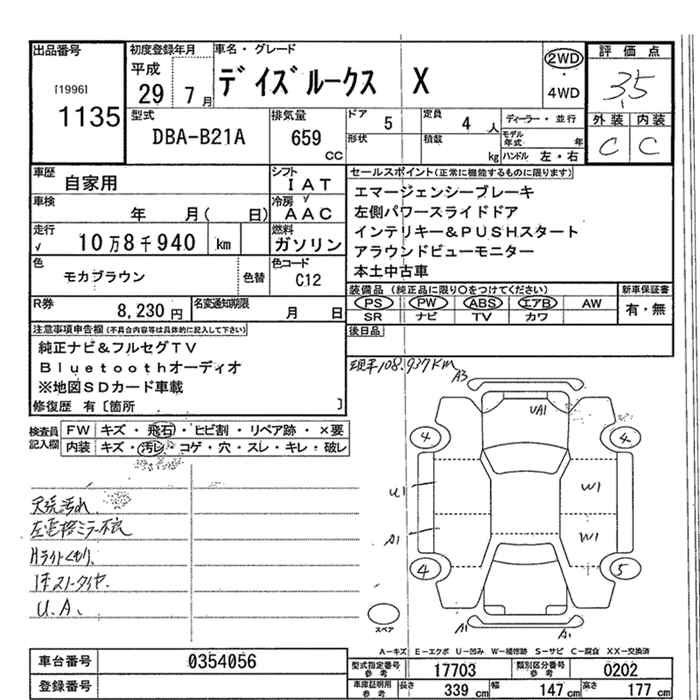 出品番号
[1996]
1135
初度登録年月
平成
29 7月
車名・グレード
デイズルークス X
2WD
・
4WD
評価点
3.5
外装 内装
C C
型式
DBA-B21A
排気量
659
CC
ドア 5
定員 4 人
ディーラー・並行
形状
積数 kg
モデル年式 年
ハンドル 左・右
車歴
自家用
シフト
IAT
車検
年 月( 日)
冷房
AAC
走行
√ 10万8千940 km
燃料
ガソリン
色
モカブラウン
色替
色コード
C12
R券
8,230円
名変通知期限
月 日
セールスポイント(正常に機能するものに限ります)
エマージェンシーブレーキ
左側パワースライドドア
インテリキー&PUSHスタート
アラウンドビューモニター
本土中古車
装備品 (純正品に限り○をつけてください)
PS PW ABS エアB AW
SR ナビ TV カワ
新車保証書
有・無
後日品
注意事項申告欄(不具合内容等は具体的に記入して下さい)
純正ナビ&フルセグTV
Bluetoothオーディオ
※地図SDカード車載
修復歴 有 [箇所 ]
現車108,937Km
検査員
記入欄
FW キズ・飛石・ヒビ割・リペア跡・×要
内装 キズ・汚レ・コゲ・穴・スレ・キレ・破レ
天張汚れ
左電格ミラー不良
Hライトくもり、
1本スノータイヤ、
U.A、
A3
UA1
4
4
U1
W1
A1
W1
4
5
スペア
A1
A1
A−キズ E−エクボ U−凹み W−補修跡 S−サビ C−腐食 XX−交換済
車台番号 0354056
登録番号
型式指定番号
参考
17703
類別区分番号
参考
0202
車庫証明用
参考
長さ 339 cm
幅 147 cm
高さ 177 cm